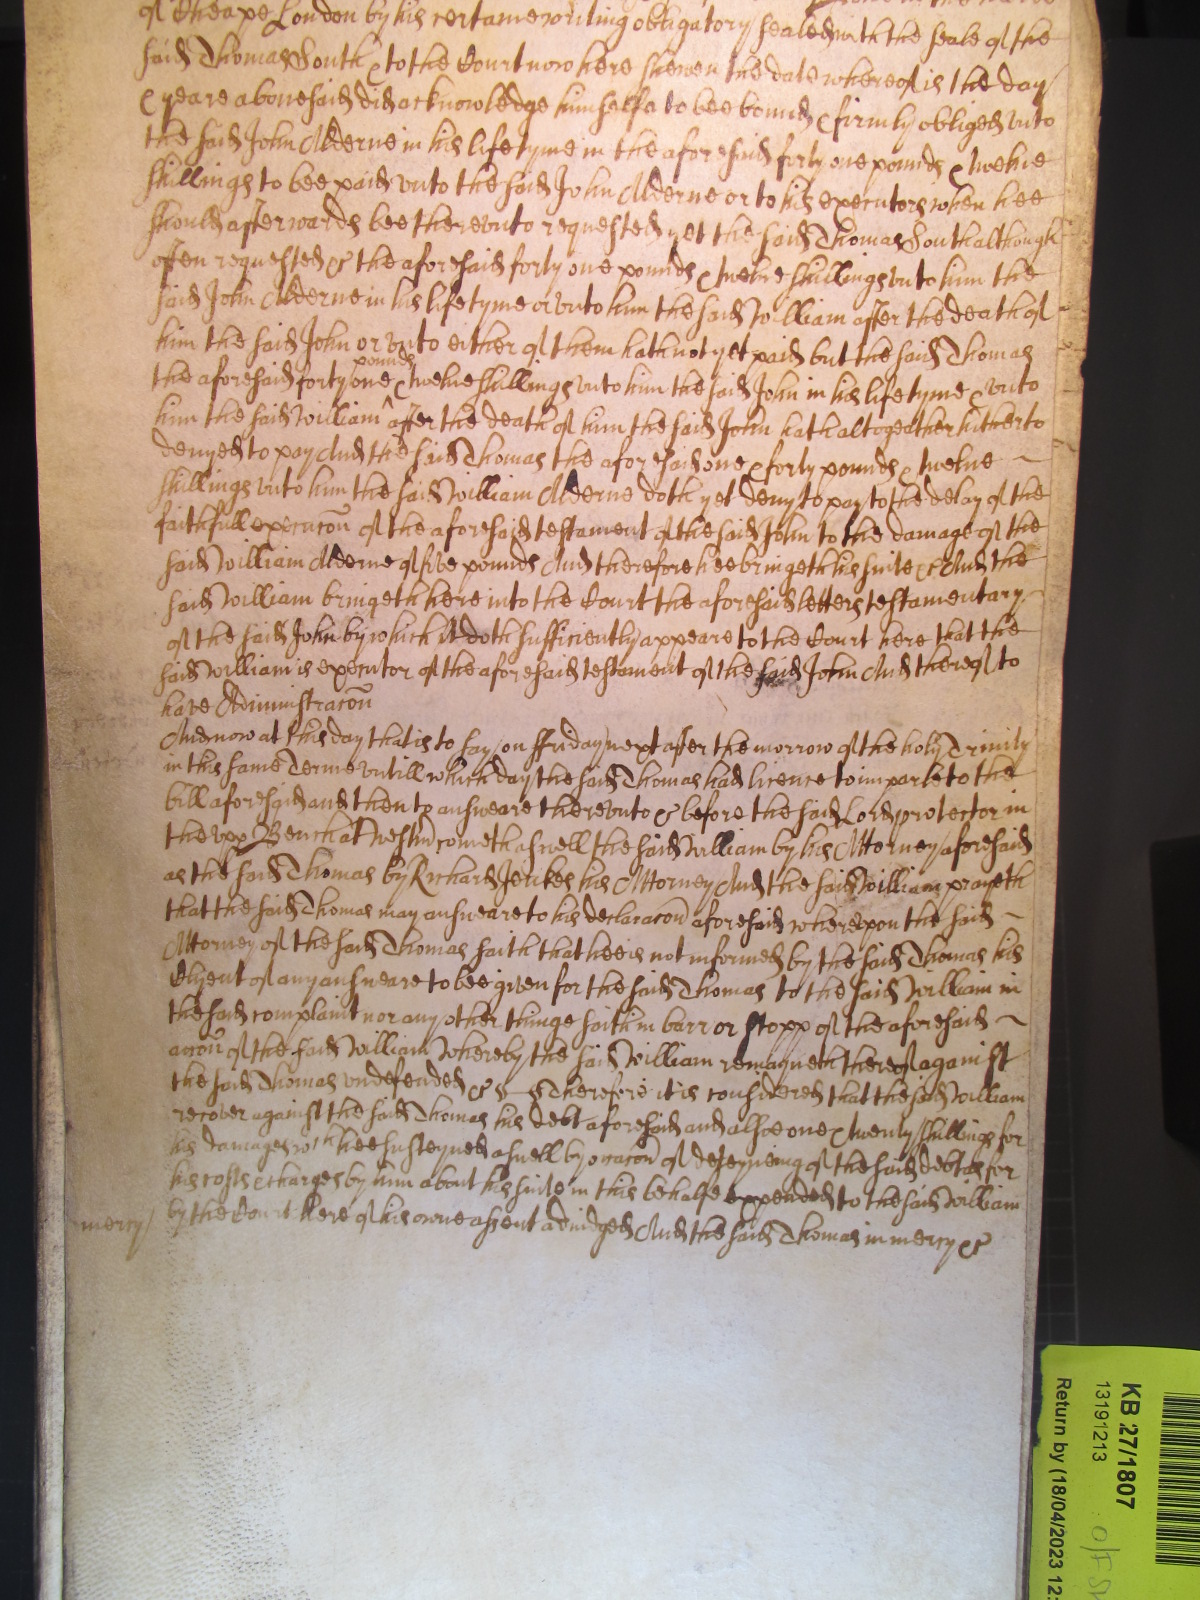 of Cheape London by his certaine writing obligatory sealed with the seale of the
said Thomas South & to the Court now here shewen the date whereof is the day
& yeare abovesaid did acknowledge himselfe to bee bound & firmly obliged unto
the said John Alderne in his life tyme in the aforesaid forty one pounds & twelve
shillings to bee paid unto the said John Alderne or to his executors when hee
should afterwards bee therevnto requested yet the said Thomas South although
often requested &c the aforesaid forty one pounds & twelve shillings vnto him the
said John Alderne in his life tyme or vnto him the said William after the death of
him the said John or vnto either of them hath not yet paid but the said Thomas
pounds
the aforesaid forty one & twelve shillings vnto him the said John in his life tyme & vnto
him the said William ^ after the death of him the said John hath altogeather hitherto
denyed to pay And the said Thomas the aforesaid one & forty pounds & twelve
shillings vnto him the said William Alderne doth yet deny to pay to the delay of the
faithfull execucon of the aforesaid testament of the said John to the damage of the
said William Alderne of five pounds And therefore hee bringeth his suite &c And the
said William bringeth here into the Court the aforesaid letters testamentary
of the said John by which it doth sufficiently appeare to the Court here that the
said William is executor of the aforesaid testament of the said John And thereof to
have Administracon
And now at this day that is to say on Friday next after the morrow of the holy Trinity
in this same Terme vntill which day the said Thomas had licence to imparle to the
bill aforesaid and then to answeare therevnto &c before the said Lord protector in
the vpp Bench at Westm cometh aswell the said William by his Attorney aforesaid
as the said Thomas by Richard Jenkes his Attorney And the said William prayeth
that the said Thomas may answeare to his declaracon aforesaid wherevpon the said
Attorney of the said Thomas saith that hee is not informed by the said Thomas his
Clyent of any answeare to bee given for the said Thomas to the said William in
the said complaint nor any other thinge saith in barr or stopp of the aforesaid
accon of the said William Whereby the said William remayneth thereof against
the said Thomas vndefended &c Therefore it is considered that the said William
recover against the said Thomas his debt aforesaid and alsoe one & twenty shillings for
his damages wch hee susteyned aswell by occacon of deteyneing of the said debt as for
his costs & charges by him about his suite in this behalfe expended to the said William
mercy by the Court here of his owne assent adiudged And the said Thomas in mercy &c
KB 27/1807
13191213
Return by (18/04/2023 12: